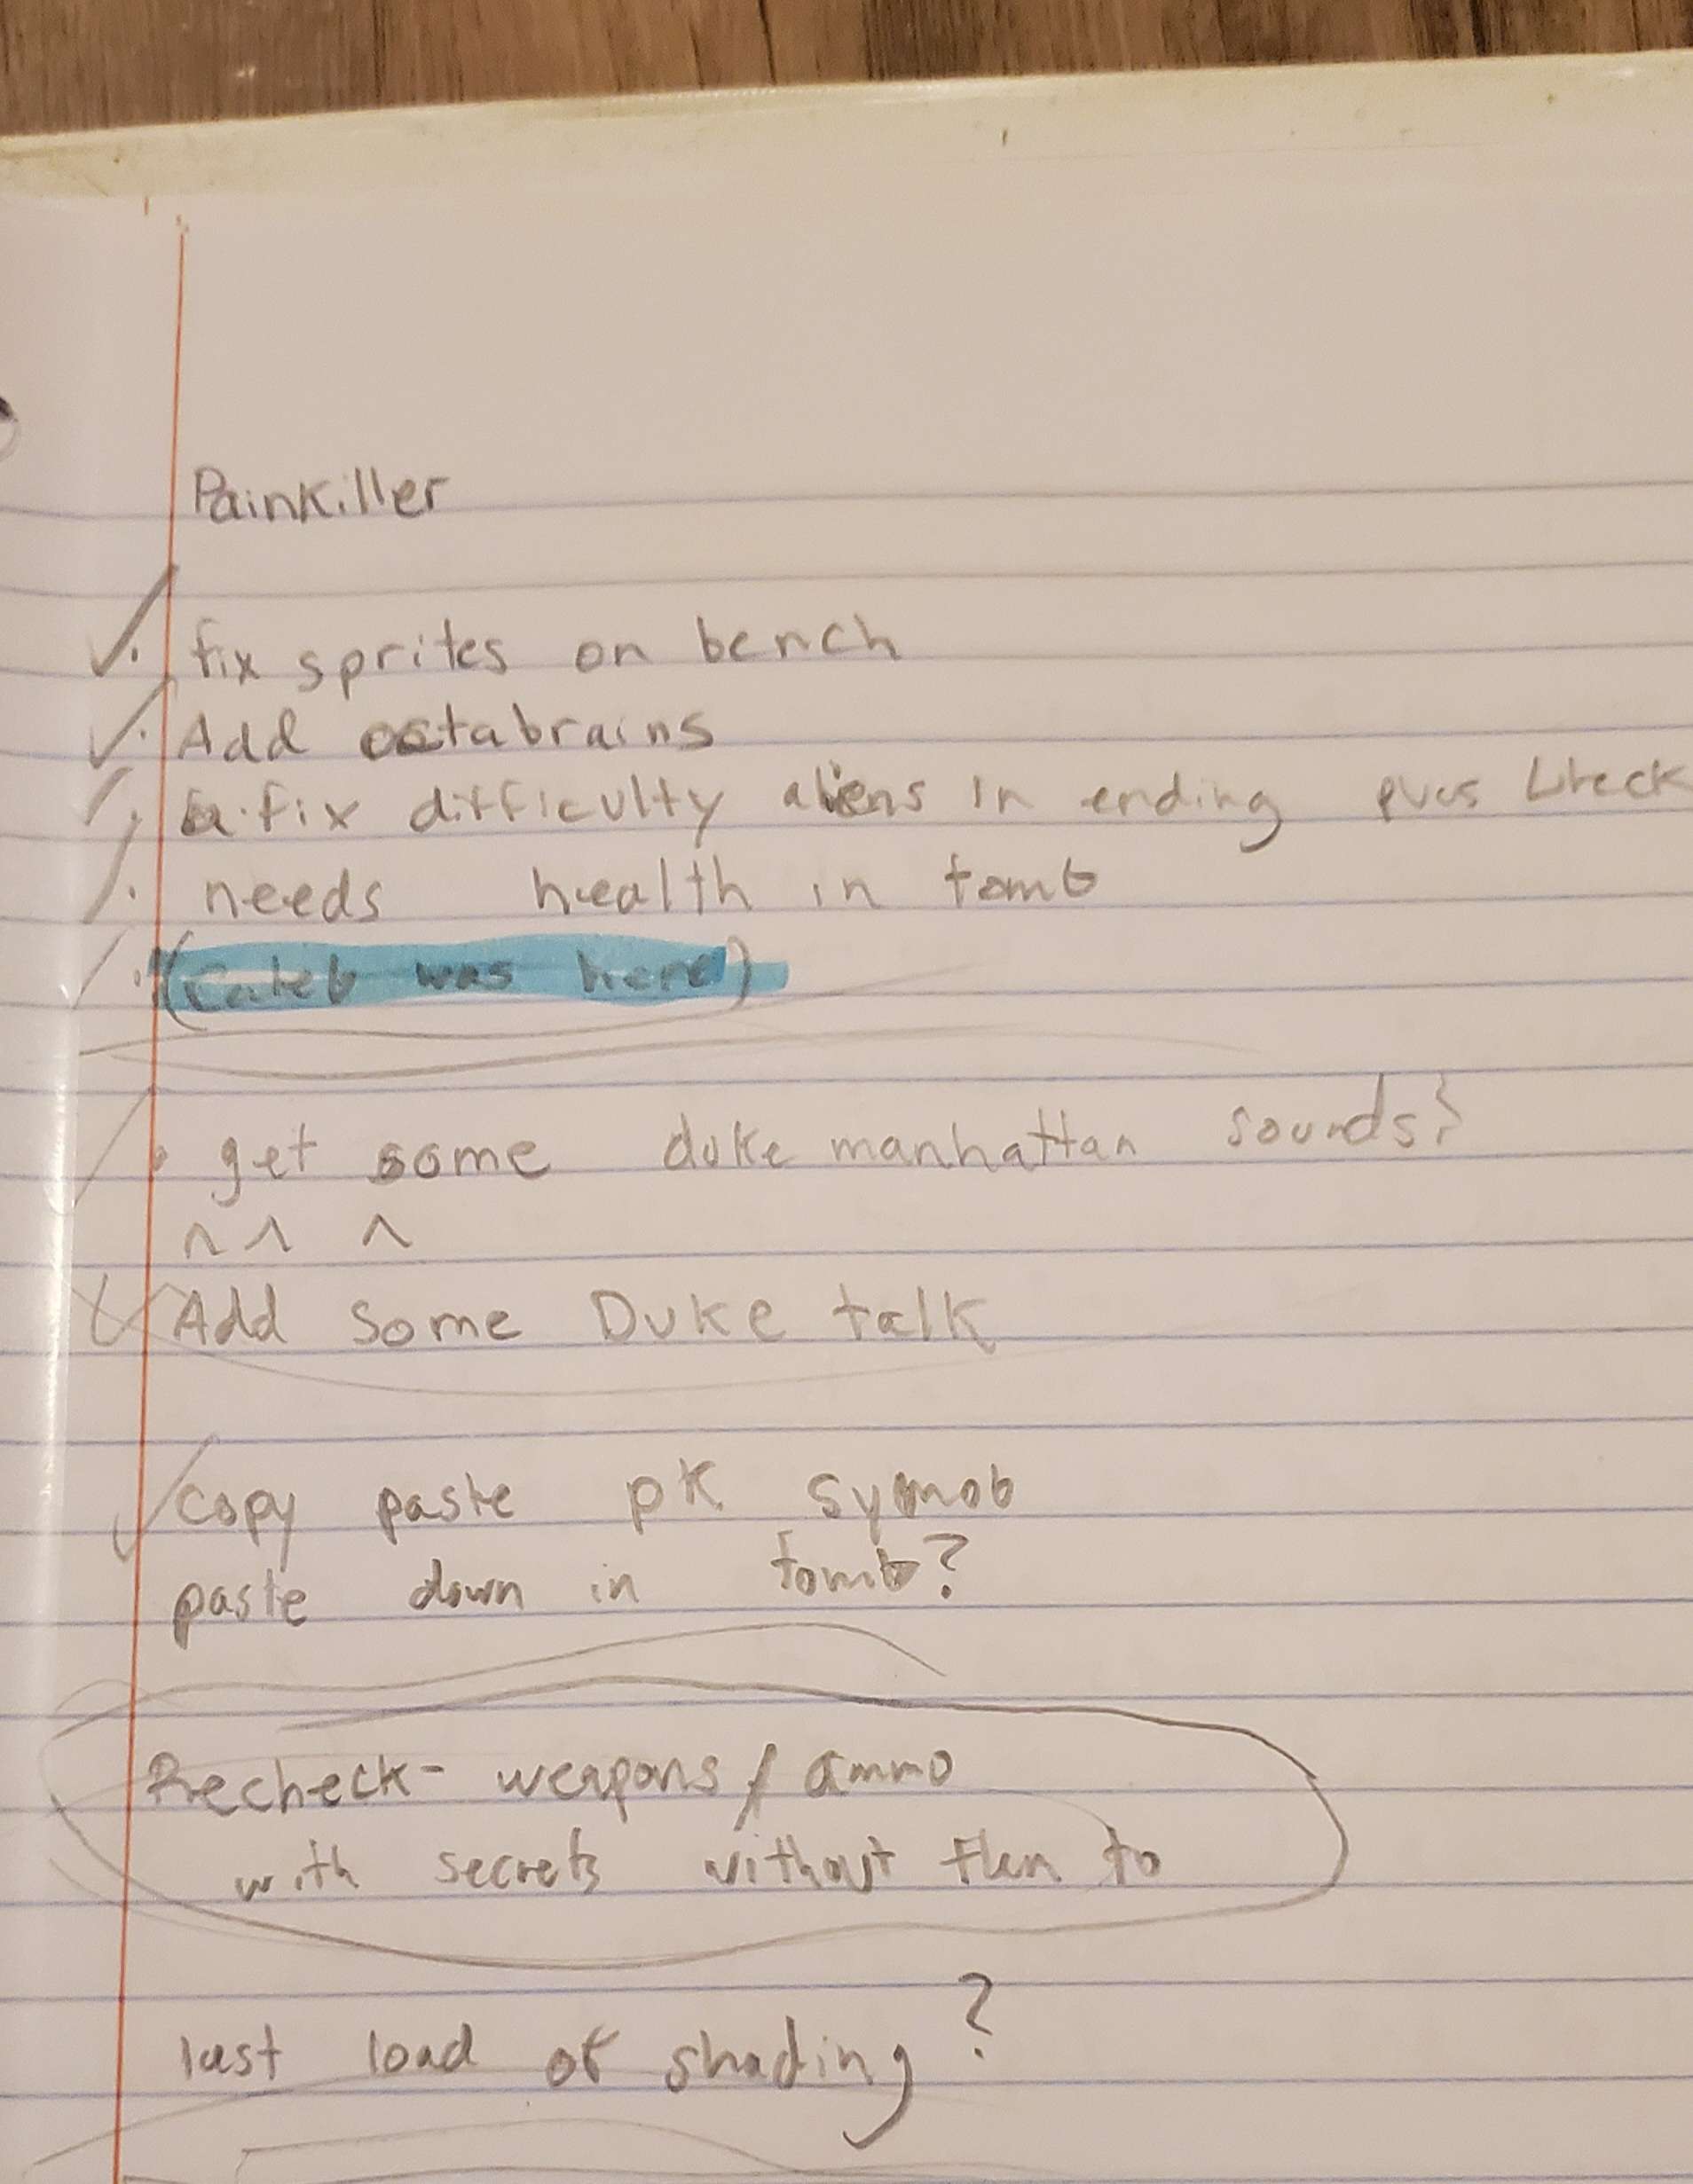 Painkiller
. fix sprites on bench
. Add octabrains
. fix difficulty aliens in ending
. needs health in tomb
. (Caleb was here)
. get some duke manhattan sounds?
^ ^ ^
Add some Duke talk
copy paste pk symob
paste down in tomb?
Recheck - weapons / ammo
with secrets without them to
last load of shading?